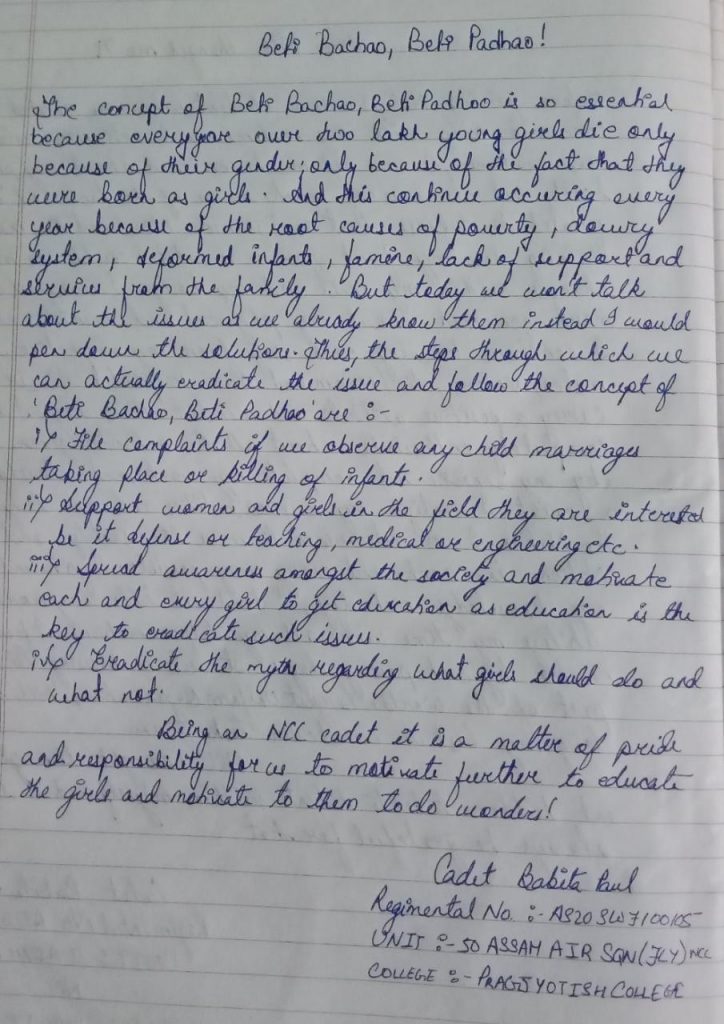 Beti Bachao, Beti Padhao!
The concept of Beti Bachao, Beti Padhoo is so essential
because everyyear over two lakh young girls die only
because of their gender; only because of the fact that they
were born as girls. And this continue occuring every
year because of the root causes of poverty, dowry
system, deformed infants, famine, lack of support and
services from the family. But today we won't talk
about the issues as we already know them instead I would
pen down the solutions. Thus, the steps through which we
can actually eradicate the issue and follow the concept of
'Beti Bachao, Beti Padhao' are :-
i) File complaints if we observe any child marriages
taking place or killing of infants.
ii) Support women and girls in the field they are interested
be it defense or teaching, medical or engineering etc.
iii) Spread awareness amongst the society and motivate
each and every girl to get education as education is the
key to eradicate such issues.
iv) Eradicate the myths regarding what girls should do and
what not.
Being an NCC cadet it is a matter of pride
and responsibility for us to motivate further to educate
the girls and motivate to them to do wonders!
Cadet Babita Paul
Regimental No. :- AS20SWF100105
UNIT :- 50 ASSAM AIR SQN (FLY) NCC
COLLEGE :- PRAGJYOTISH COLLEGE